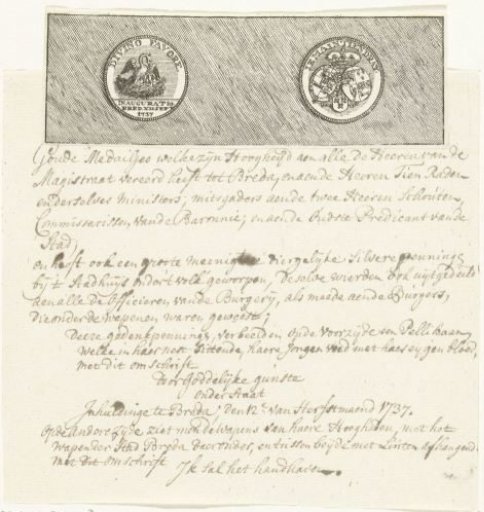 DIVINO FAVORE
INAUGURATUS
BREDÆ XII SEPT
1737
Goude Medailjes welke zijn Hoogheijd aen alle de Heeren van de
Magistraat vereerd heeft tot Breda, en aende Heeren Tien Raden
en derselver Ministers, mitsgaders aende twee Heeren Schouten
Commissarissen vande Baronnie, en aende Oudste Predicant vande
Stad,
en heeft ook een groote meenigte diergelijke Silvere penninge
bij 't Stadhuijs onder 't volk geworpen, Deselve wierden ook uijtgedeeld
aen alle de Officieren vande Burgery, als meede aende Burgers,
die onder de wapenen waren geweest;
Deeze gedenkpennings, verbeelden op de voorzyde een Pellikaen,
welke in haer nest sittende, haere Jongen voed met haer eygen bloed,
met dit omschrift
Door Goddelijke gunste
onder staat
Inhuldinge te Breda, den 12.e van Herfstmaend 1737.
Op de andere zyde ziet men de wapens van haere Hoogheden, met het
wapen der Stad Breda daer onder, en tussen beyde met Linten afhangend
met dit omschrift Ik sal het handhaven.